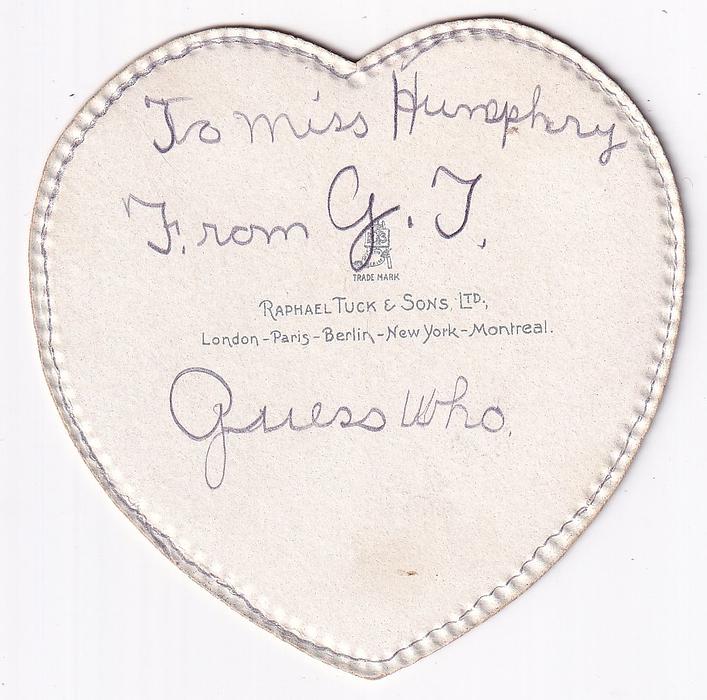 To Miss Humphry
From G. T.
TRADE MARK
RAPHAEL TUCK & SONS, LTD;
London-Paris-Berlin-New York-Montreal.
Guess Who.